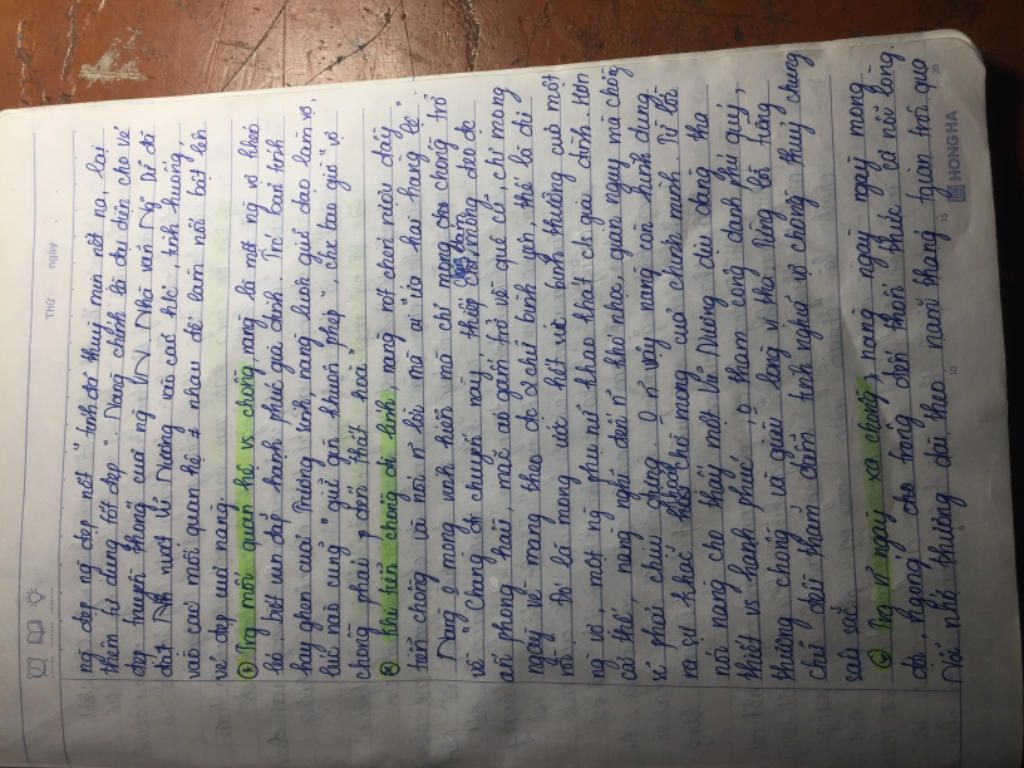 Thứ
ngày
ng đẹp ng nết" tính đã thùy mị nết na, lại
thêm tư dung tốt đẹp". Nàng chính là đại diện cho vẻ
đẹp truyền thống của ng PN VN. Nhà văn N~ Dữ đã
đặt n/v Vũ Nương vào các h/c, tình huống,
vào các mối quan hệ ≠ nhau để làm nổi bật lên
vẻ đẹp của nàng.
① Trg mối quan hệ vs chồng, nàng là một ng vợ khéo
léo, biết vun đắp hạnh phúc gia đình. Trc bản tính
hay ghen của Trương Sinh, nàng luôn giữ đạo làm vợ,
lúc nào cũng "giữ gìn khuôn phép", chx bao giờ vợ
chồng phải đến thất hoà".
② Khi tiễn chồng đi lính, nàng rót chén rượu đầy
tiễn chồng và nói n~ lời mà ai ai cũng
Nàng ko mong vinh hiển mà chỉ mong cho chồng trở
về "Chàng đi chuyến này, thiếp chẳng dám mong đeo đc
ấn phong hầu, mặc áo gấm trở về quê cũ, chỉ mong
ngày về mang theo đc 2 chữ bình yên, thế là đủ
rồi". Đó là mong ước hết sức bình thường của một
ng vợ, một ng phụ nữ khao khát h/p gia đình. Hơn
cả thế, nàng nghĩ đến n~ khó nhọc, gian nguy mà chồng
sẽ phải chịu đựng. Ko n~ vậy nàng còn hình dung
ra sự khắc khoải chờ mong của chính mình. Từ lời
nói nàng cho thấy một Vũ Nương dịu dàng tha
thiết vs hạnh phúc, ko tham công danh phú quý,
thương chồng và giàu lòng vị tha. Từng lời tiếng
chữ đều thấm đẫm tình nghĩa vợ chồng thủy chung
sâu sắc
③ Trg n~ ngày xa chồng, nàng ngày ngày mong
đợi, ngóng cho trông đến thổn thức cả nỗi lòng.
Nỗi nhớ thương dài theo năm tháng ngàn trôi qua
5
10
15
20
HONG HA